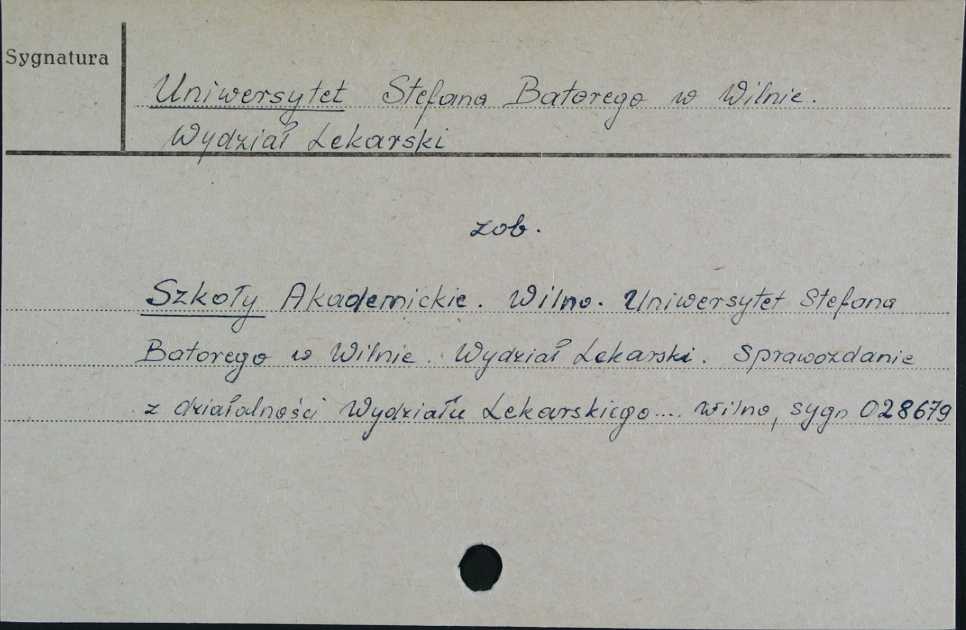 Sygnatura
Uniwersytet Stefana Batorego w Wilnie.
Wydział Lekarski
zob.
Szkoły Akademickie. Wilno. Uniwersytet Stefana
Batorego w Wilnie. Wydział Lekarski. Sprawozdanie
z działalności Wydziału Lekarskiego.... Wilno, sygn 028679